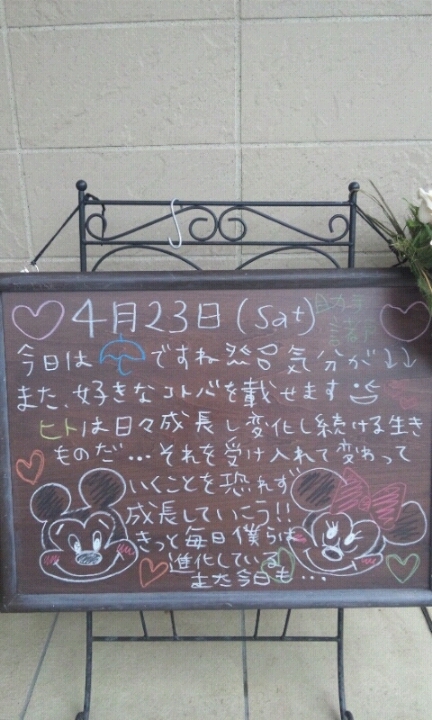 4月23日(Sat)
今日は☂ですね 気分が↓↓
また、好きなコトバを載せます
ヒトは日々成長し変化し続ける生き
ものだ…それを受け入れて変わって
いくことを恐れず
成長していこう!!
きっと毎日僕らは
進化している
また今日も…